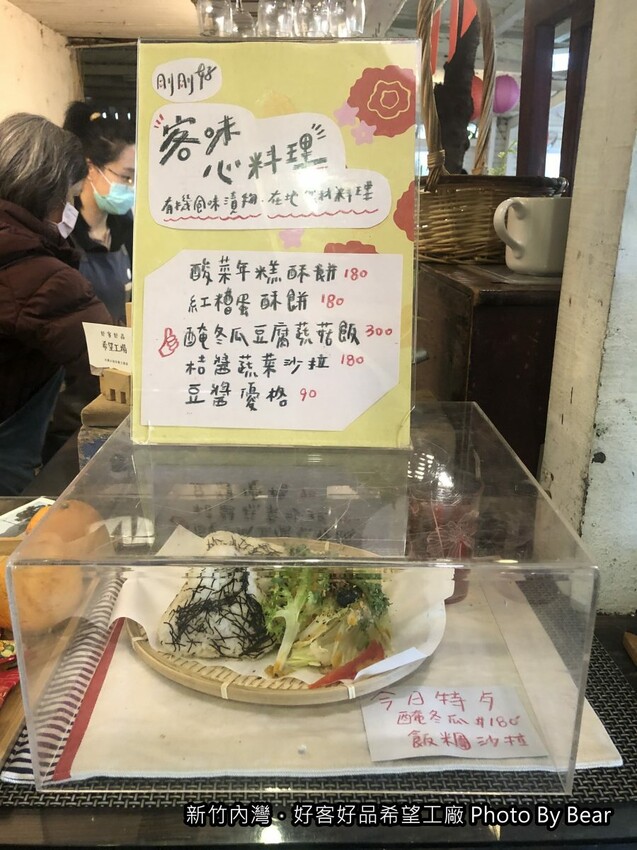 剛剛好
客味
心料理
有機風味漬物·在地食材料理
酸菜年糕酥餅 180
紅糟蛋酥餅 180
醃冬瓜豆腐蔬菇飯 300
桔醬蔬菜沙拉 180
豆醬優格 90
希望工場
今日特餐
醃冬瓜 $180
飯糰沙拉
新竹內灣·好客好品希望工廠 Photo By Bear